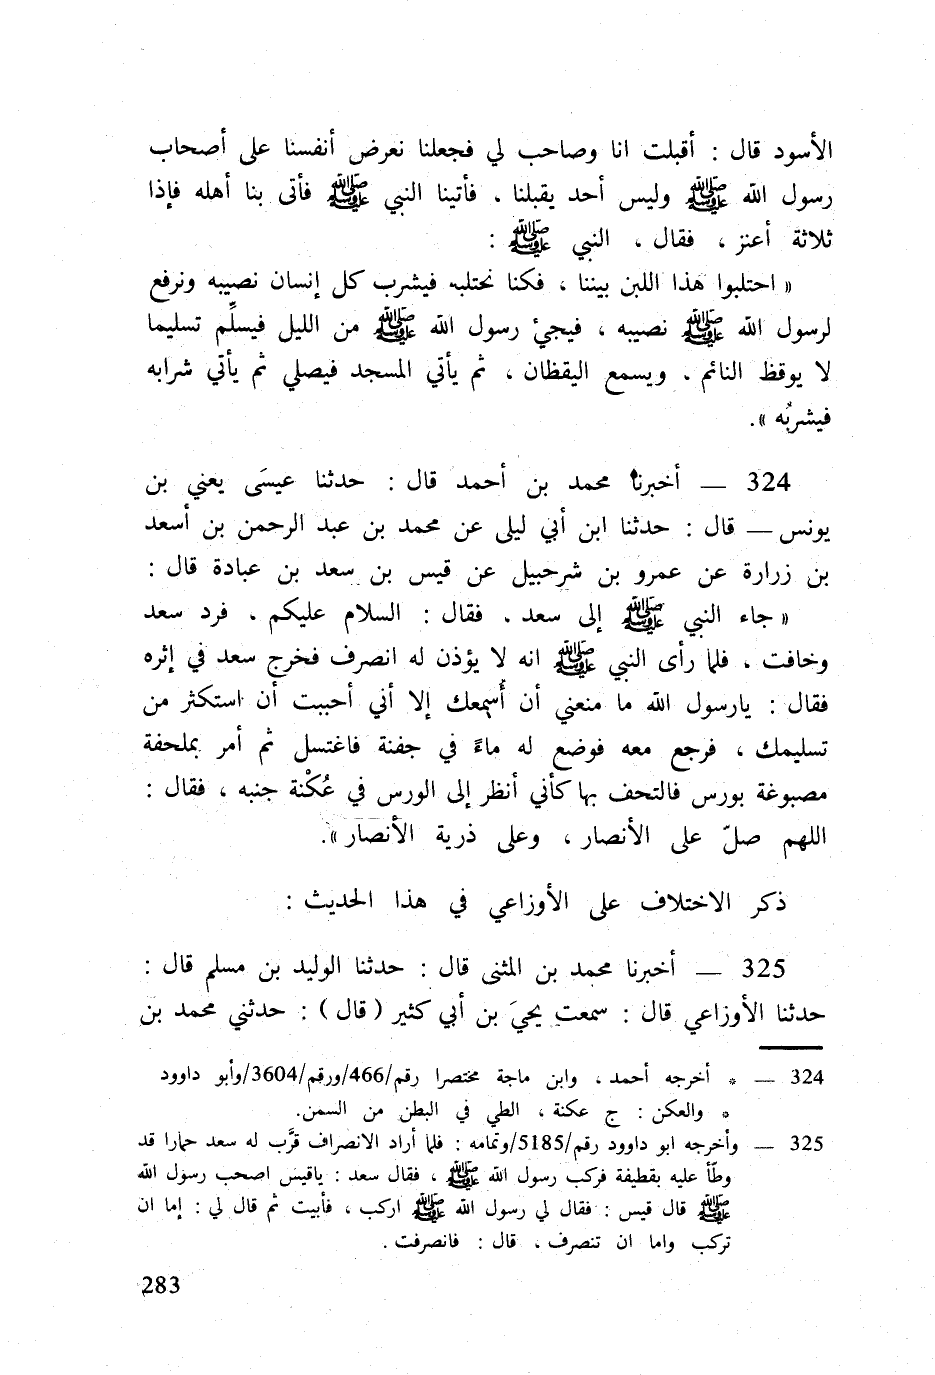 الأسود قال : أقبلت انا وصاحب لي فجعلنا نعرض أنفسنا على أصحاب
رسول الله ﷺ وليس أحد يقبلنا . فأتينا النبي ﷺ فأتى بنا أهله فإذا
ثلاثة أعنز ، فقال ، النبي ﷺ :
« احتلبوا هذا اللبن بيننا ، فكنا نحتلبه فيشرب كل إنسان نصيبه ونرفع
لرسول الله ﷺ نصيبه ، فيجيُ رسول الله ﷺ من الليل فيسلِّم تسليما
لا يوقظ النائم . ويسمع اليقظان ، ثم يأتي المسجد فيصلي ثم يأتي شرابه
فيشربُه ».
324 — أخبرنا محمد بن أحمد قال : حدثنا عيسَى يعني بن
يونس — قال : حدثنا ابن أبي ليلى عن محمد بن عبد الرحمن بن أسعد
بن زرارة عن عمرو بن شرحبيل عن قيس بن سعد بن عبادة قال :
« جاء النبي ﷺ إلى سعد . فقال : السلام عليكم . فرد سعد
وخافت . فلما رأى النبي ﷺ انه لا يؤذن له انصرف فخرج سعد في إثره
فقال : يارسول الله ما منعني أن أُسمعك إلا أني أحببت أن استكثر من
تسليمك ، فرجع معه فوضع له ماءً في جفنة فاغتسل ثم أمر بملحفة
مصبوغة بورس فالتحف بها كأني أنظر إلى الورس في عُكْنة جنبه ، فقال :
اللهم صلّ على الأنصار ، وعلى ذرية الأنصار ».
ذكر الاختلاف على الأوزاعي في هذا الحديث :
325 — أخبرنا محمد بن المثنى قال : حدثنا الوليد بن مسلم قال :
حدثنا الأوزاعي قال : سمعت يحيَ بن أبي كثير ( قال ) : حدثني محمد بن
324 — * أخرجه أحمد ، وابن ماجة مختصرا رقم/466/ورقم/3604/وأبو داوود
* والعكن : ج عكنة ، الطي في البطن من السمن.
325 — وأخرجه ابو داوود رقم/5185/وتمامه : فلما أراد الانصراف قرَّب له سعد حمارا قد
وطَّأ عليه بقطيفة فركب رسول الله ﷺ ، فقال سعد : ياقيس اصحب رسول الله
ﷺ قال قيس : فقال لي رسول الله ﷺ اركب ، فأبيت ثم قال لي : إما ان
تركب واما ان تنصرف . قال : فانصرفت .
283